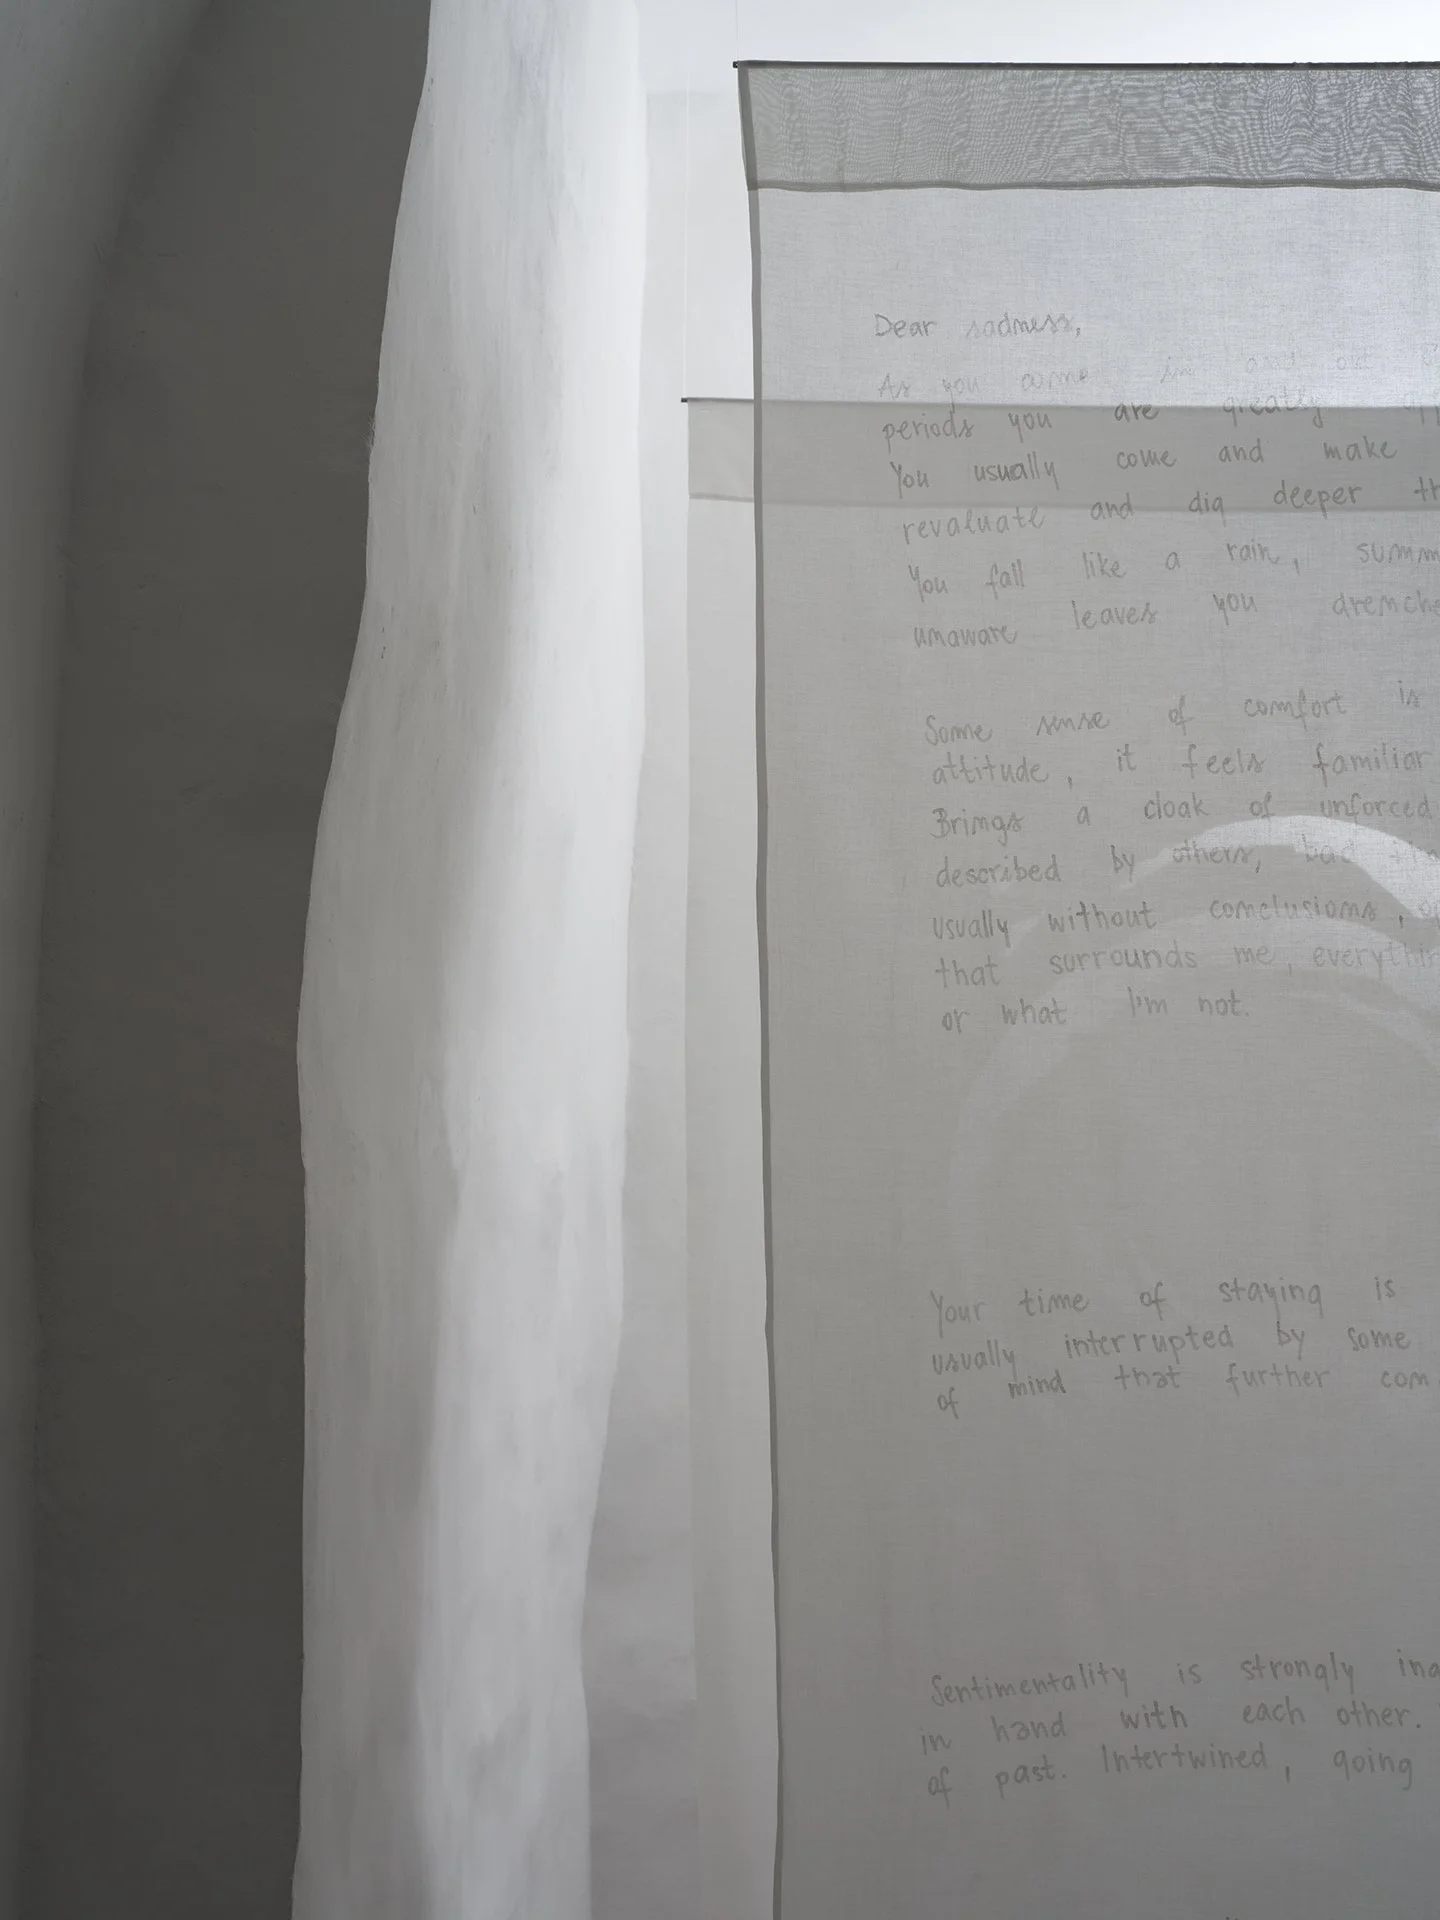 Dear sadness,
As you come in and out
periods you are greatly
You usually come and make
revaluate and dig deeper
You fall like a rain,
unaware leaves you
Some sense of comfort is
attitude, it feels familiar
Brings a cloak of unforced
described by others, bad
usually without conclusions,
that surrounds me,
or what I'm not.
Your time of staying is
usually interrupted by some
of mind that further
Sentimentality is strongly
in hand with each other.
of past. Intertwined, going